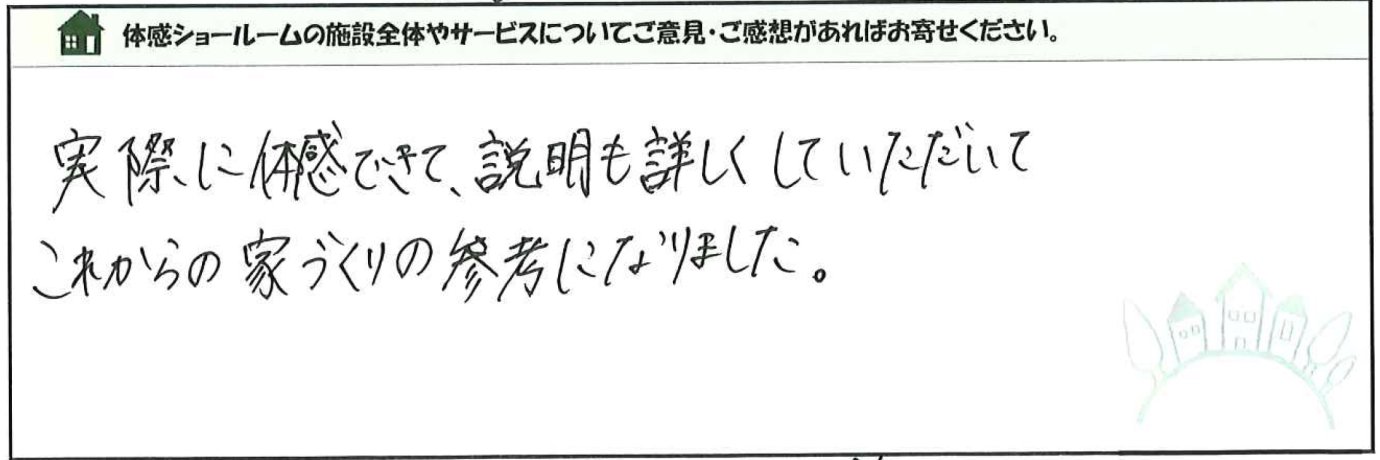 体感ショールームの施設全体やサービスについてご意見・ご感想があればお寄せください。
実際に体感できて、説明も詳しくしていただいて
これからの家づくりの参考になりました。